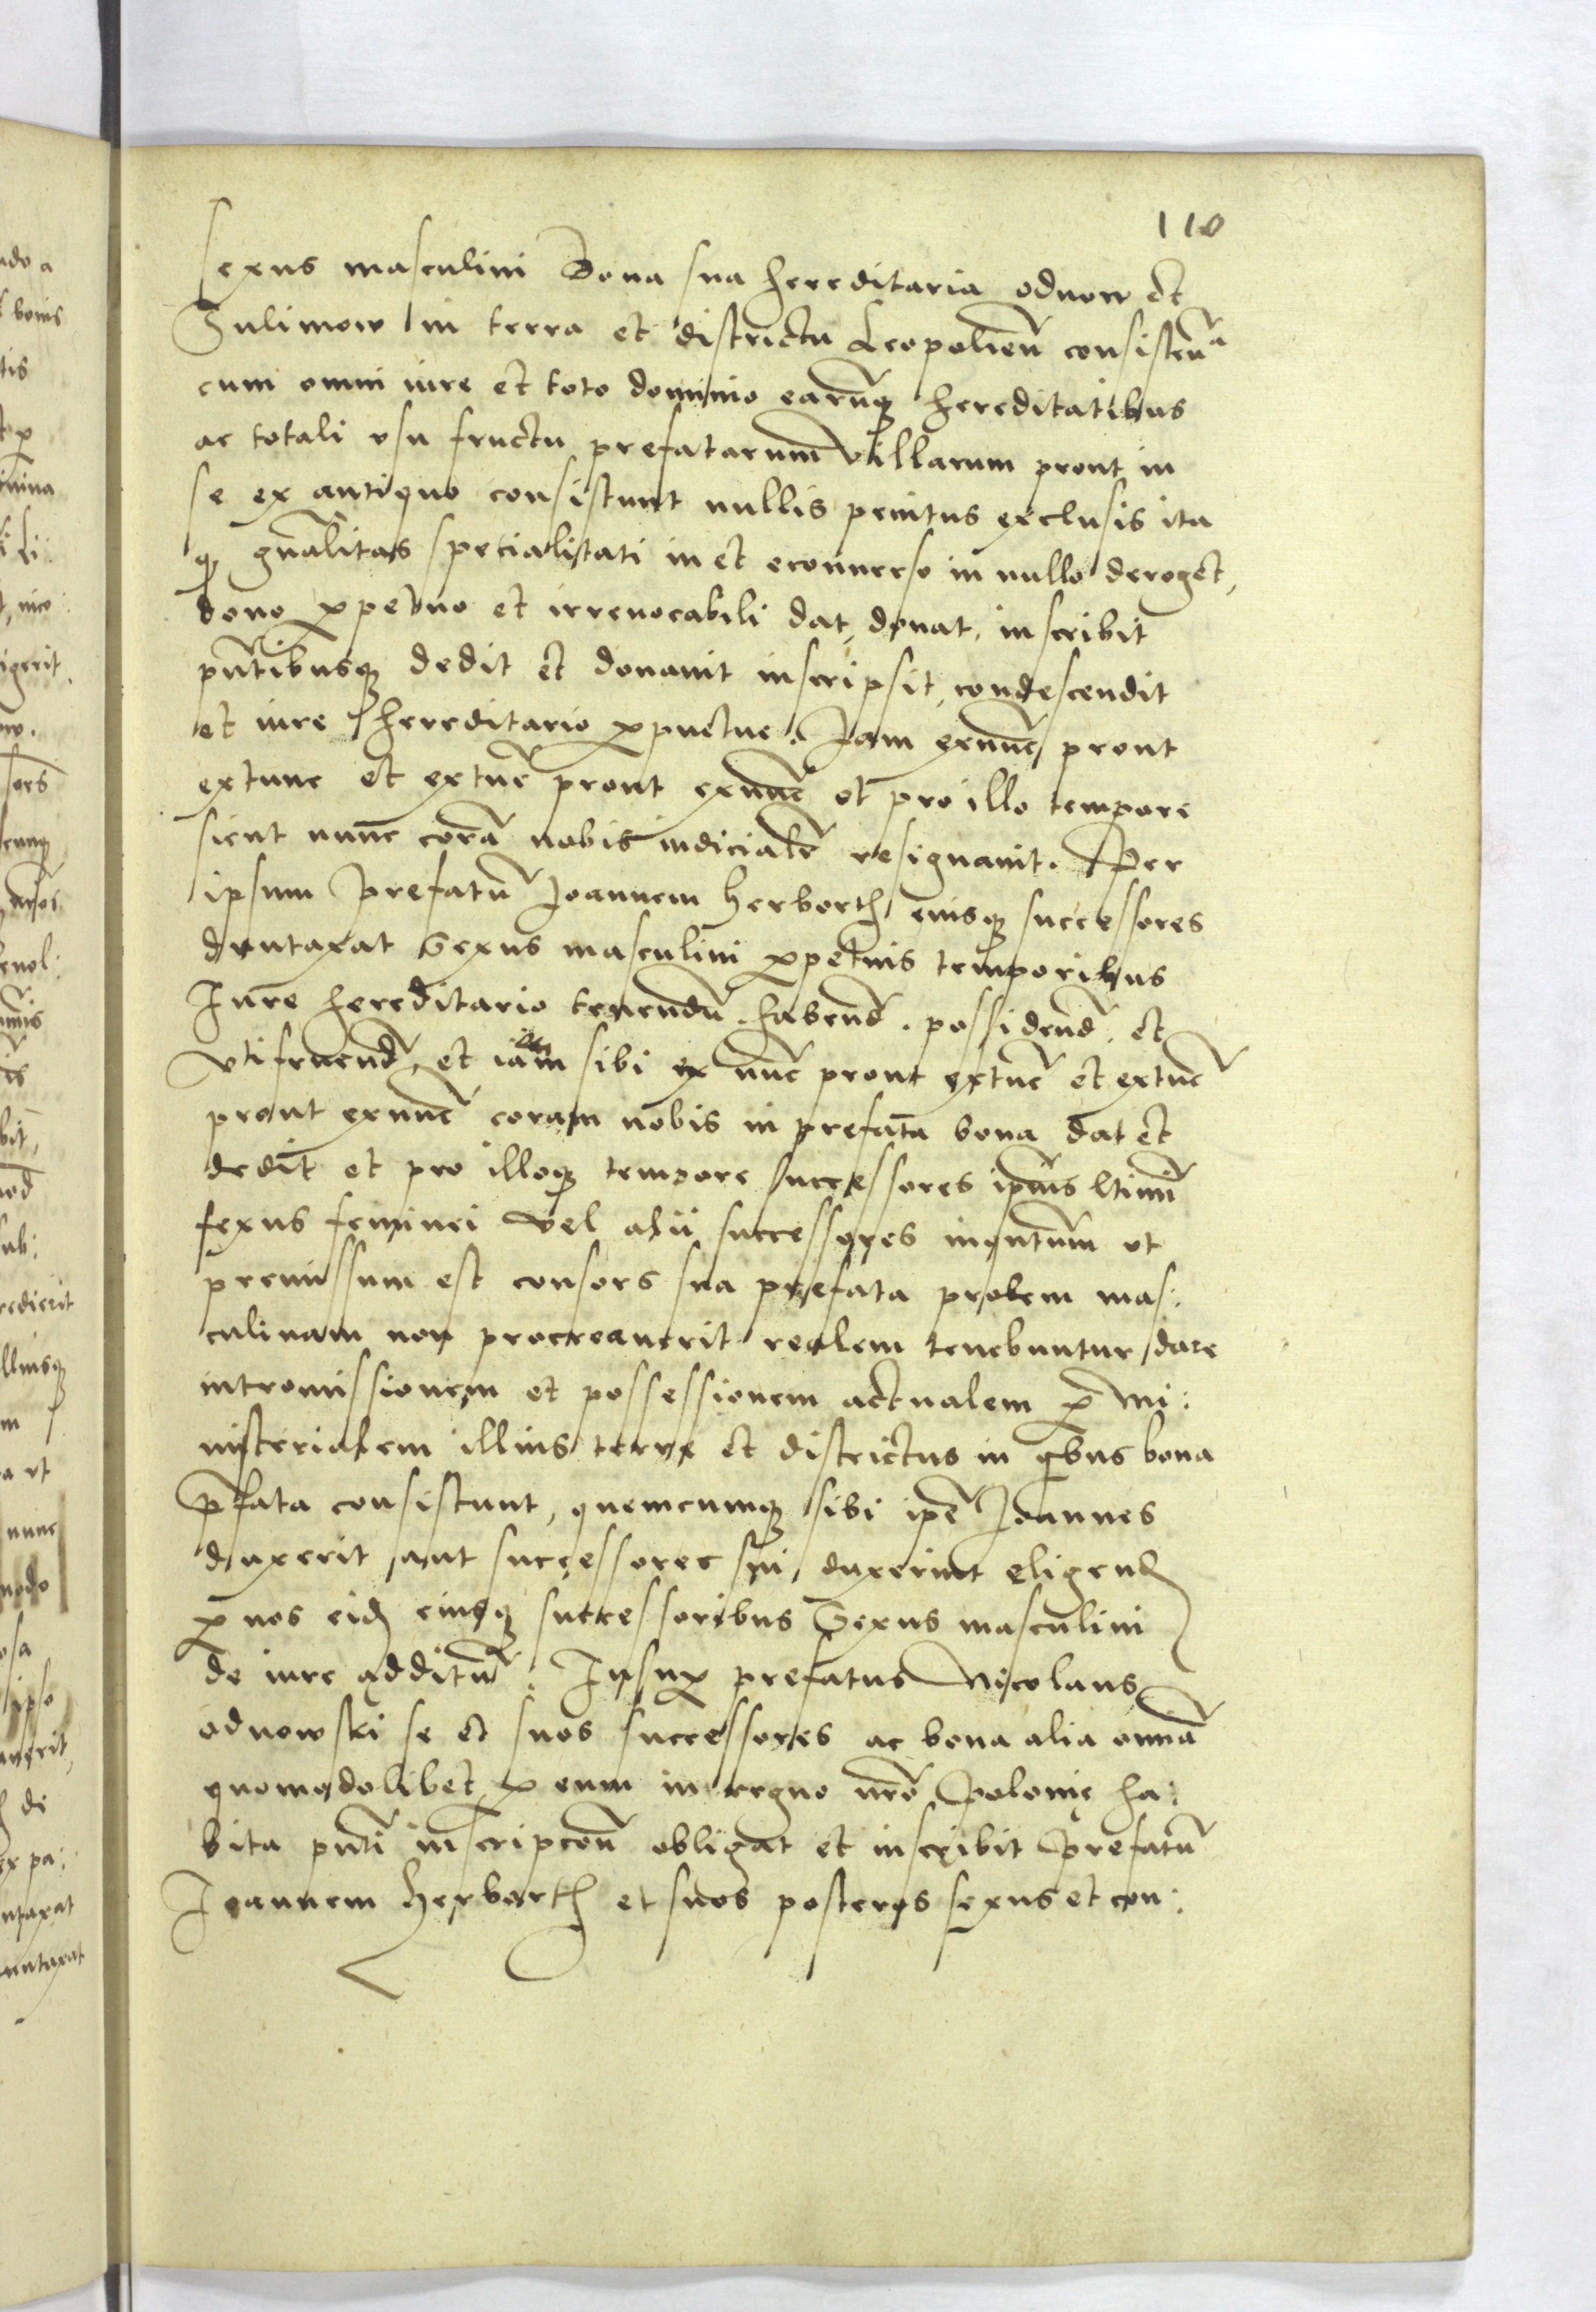 110
sexus masculini Bona sua hereditaria odnow et
Sulimow in terra et districtu Leopolien̄ consisten̄a
cum omni iure et toto dominio earūq₃ hereditatibus
ac totali vsu fructu prefatarum villarum prout in
se ex antiquo consistunt nullis penitus exclusis ita
q₃ gn̄alitas specialitati in et econuerso in nullo deroget,
dono ꝑpetuo et irreuocabili dat, donat, inscribit
pn̄tibusq₃ dedit et donauit inscripsit, condescendit
et iure hereditario ꝑpuetue. Jam exnūc prout
extunc et extūc prout exnūc et pro illo tempore
sicut nunc corā nobis iudicialr̄ resignauit. Per
ipsum prefatū Joannem herborth eiusq₃ successores
duntaxat sexus masculini ꝑpetuis temporibus
Jure hereditario tenendū. habend̄. possidend̄. et
vtifruend̄, et iam sibi ex nūc prout extūc et extūc
prout exnūc coram nobis in prefata bona dat et
dedit et pro illoq₃ tempore successores ip̄ius ltimi
sexus feminei vel alii successores inqntum vt
premissum est consors sua prefata prolem mas:
culinam non procreauerit realem tenebuntur dare
intromissionem et possessionem actualem ꝑ mi:
nisterialem illius terre et districtus in qbus bona
p̄fata consistunt, quemcumq₃ sibi ip̄e Joannes
duxerit aut successores sui duxerint eligend̄
ꝑ nos eid̄ eiusq₃ successoribus Sexus masculini
de iure additū. Insuꝑ prefatus Nicolaus
odnowski se et suos successores ac bona alia omnia
quomodolibet ꝑ eum in regno nr̄o Polonię ha:
bita pn̄ti inscripcon̄ obligat et inscribit prefatū
Joannem herborth et suos posteros sexus et con: